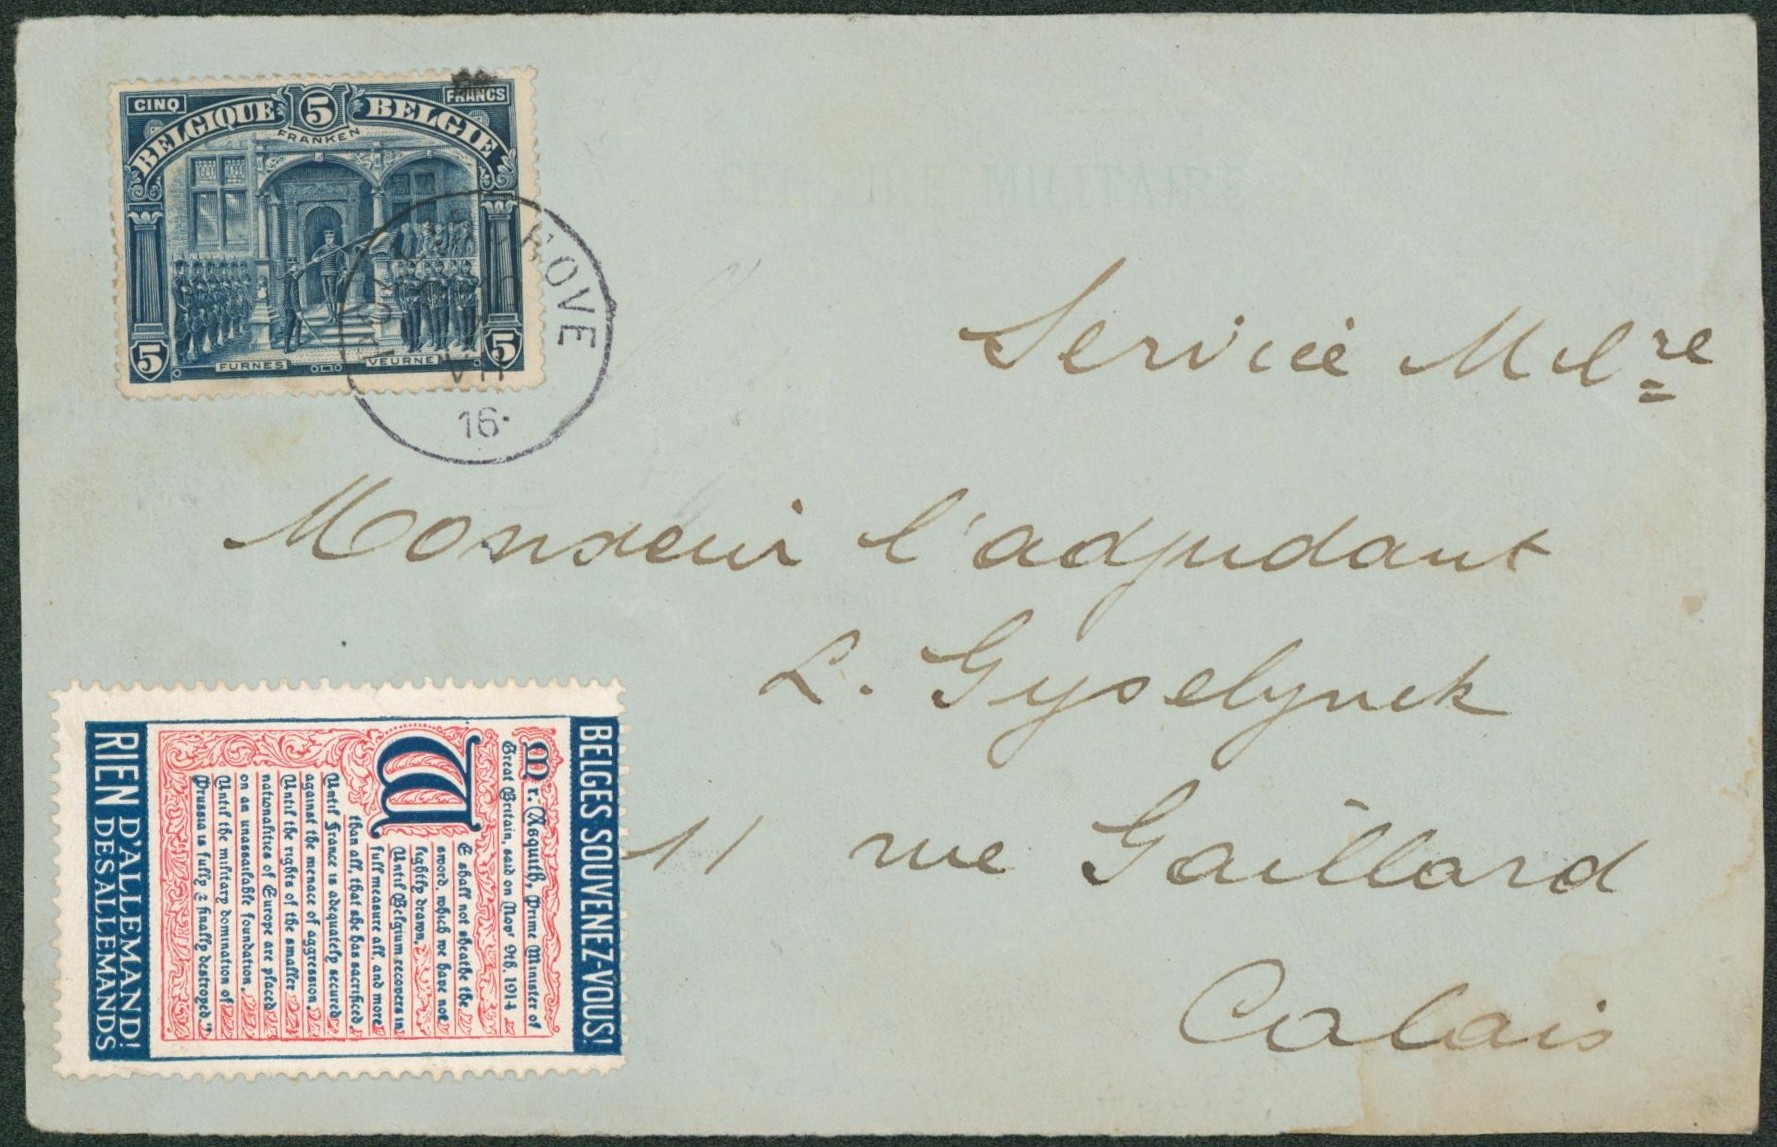 CINQ 5 FRANCS
BELGIQUE BELGIË
FRANKEN
5 5
FURNES VEURNE
KOVE
VII
16
MILITAIRE
Service Milre
Monsieur l'adjudant
L. Gyselynck
11 rue Gaillard
Calais
BELGES SOUVENEZ-VOUS!
Mr. Asquith, Prime Minister of
Great Britain, said on Novr 9th, 1914
WE shall not sheathe the
sword, which we have not
lightly drawn,
Until Belgium recovers in
full measure all, and more
than all, that she has sacrificed,
Until France is adequately secured
against the menace of aggression,
Until the rights of the smaller
nationalities of Europe are placed
on an unassailable foundation,
Until the military domination of
Prussia is fully & finally destroyed."
RIEN D'ALLEMAND!
RIEN DES ALLEMANDS